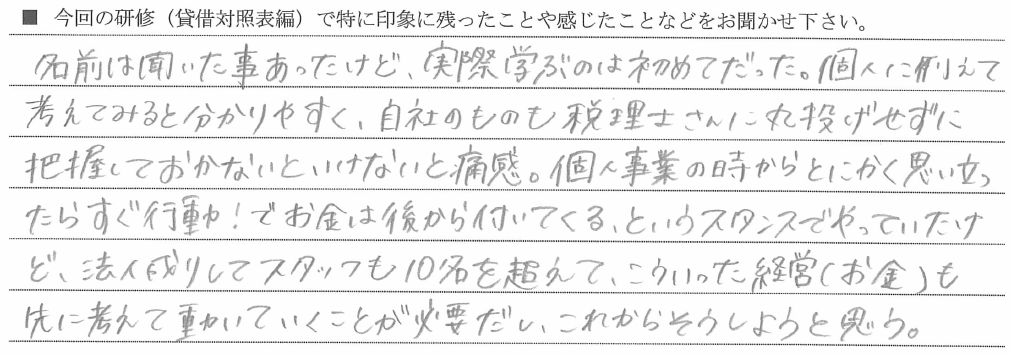 ■ 今回の研修（貸借対照表編）で特に印象に残ったことや感じたことなどをお聞かせ下さい。
名前は聞いた事あったけど、実際学ぶのは初めてだった。個人に例えて
考えてみると分かりやすく、自社のものも税理士さんに丸投げせずに
把握しておかないといけないと痛感。個人事業の時からとにかく思い立っ
たらすぐ行動！でお金は後から付いてくる、というスタンスでやっていたけ
ど、法人成りしてスタッフも10名を超えて、こういった経営（お金）も
先に考えて動いていくことが必要だし、これからそうしようと思う。